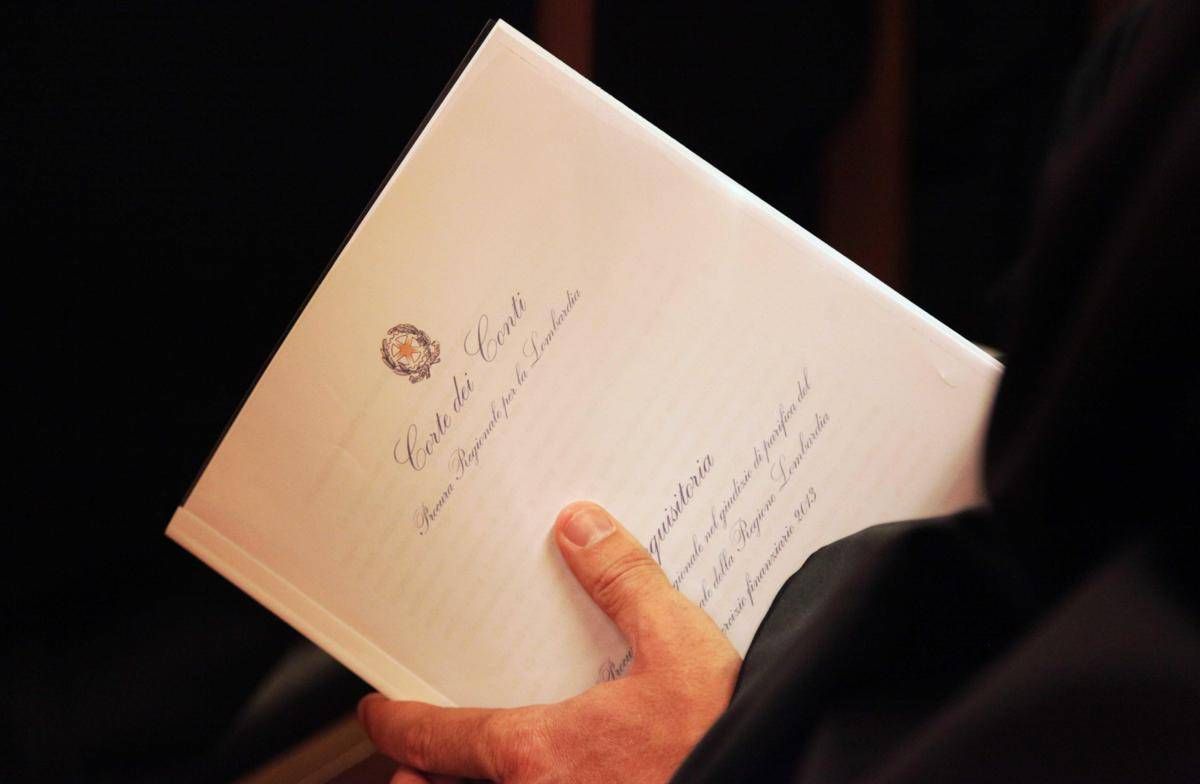 Corte dei Conti
Procura Regionale per la Lombardia
quisitoria
gionale nel giudizio di parifica del
ale della Regione Lombardia
rcizio finanziario 2013